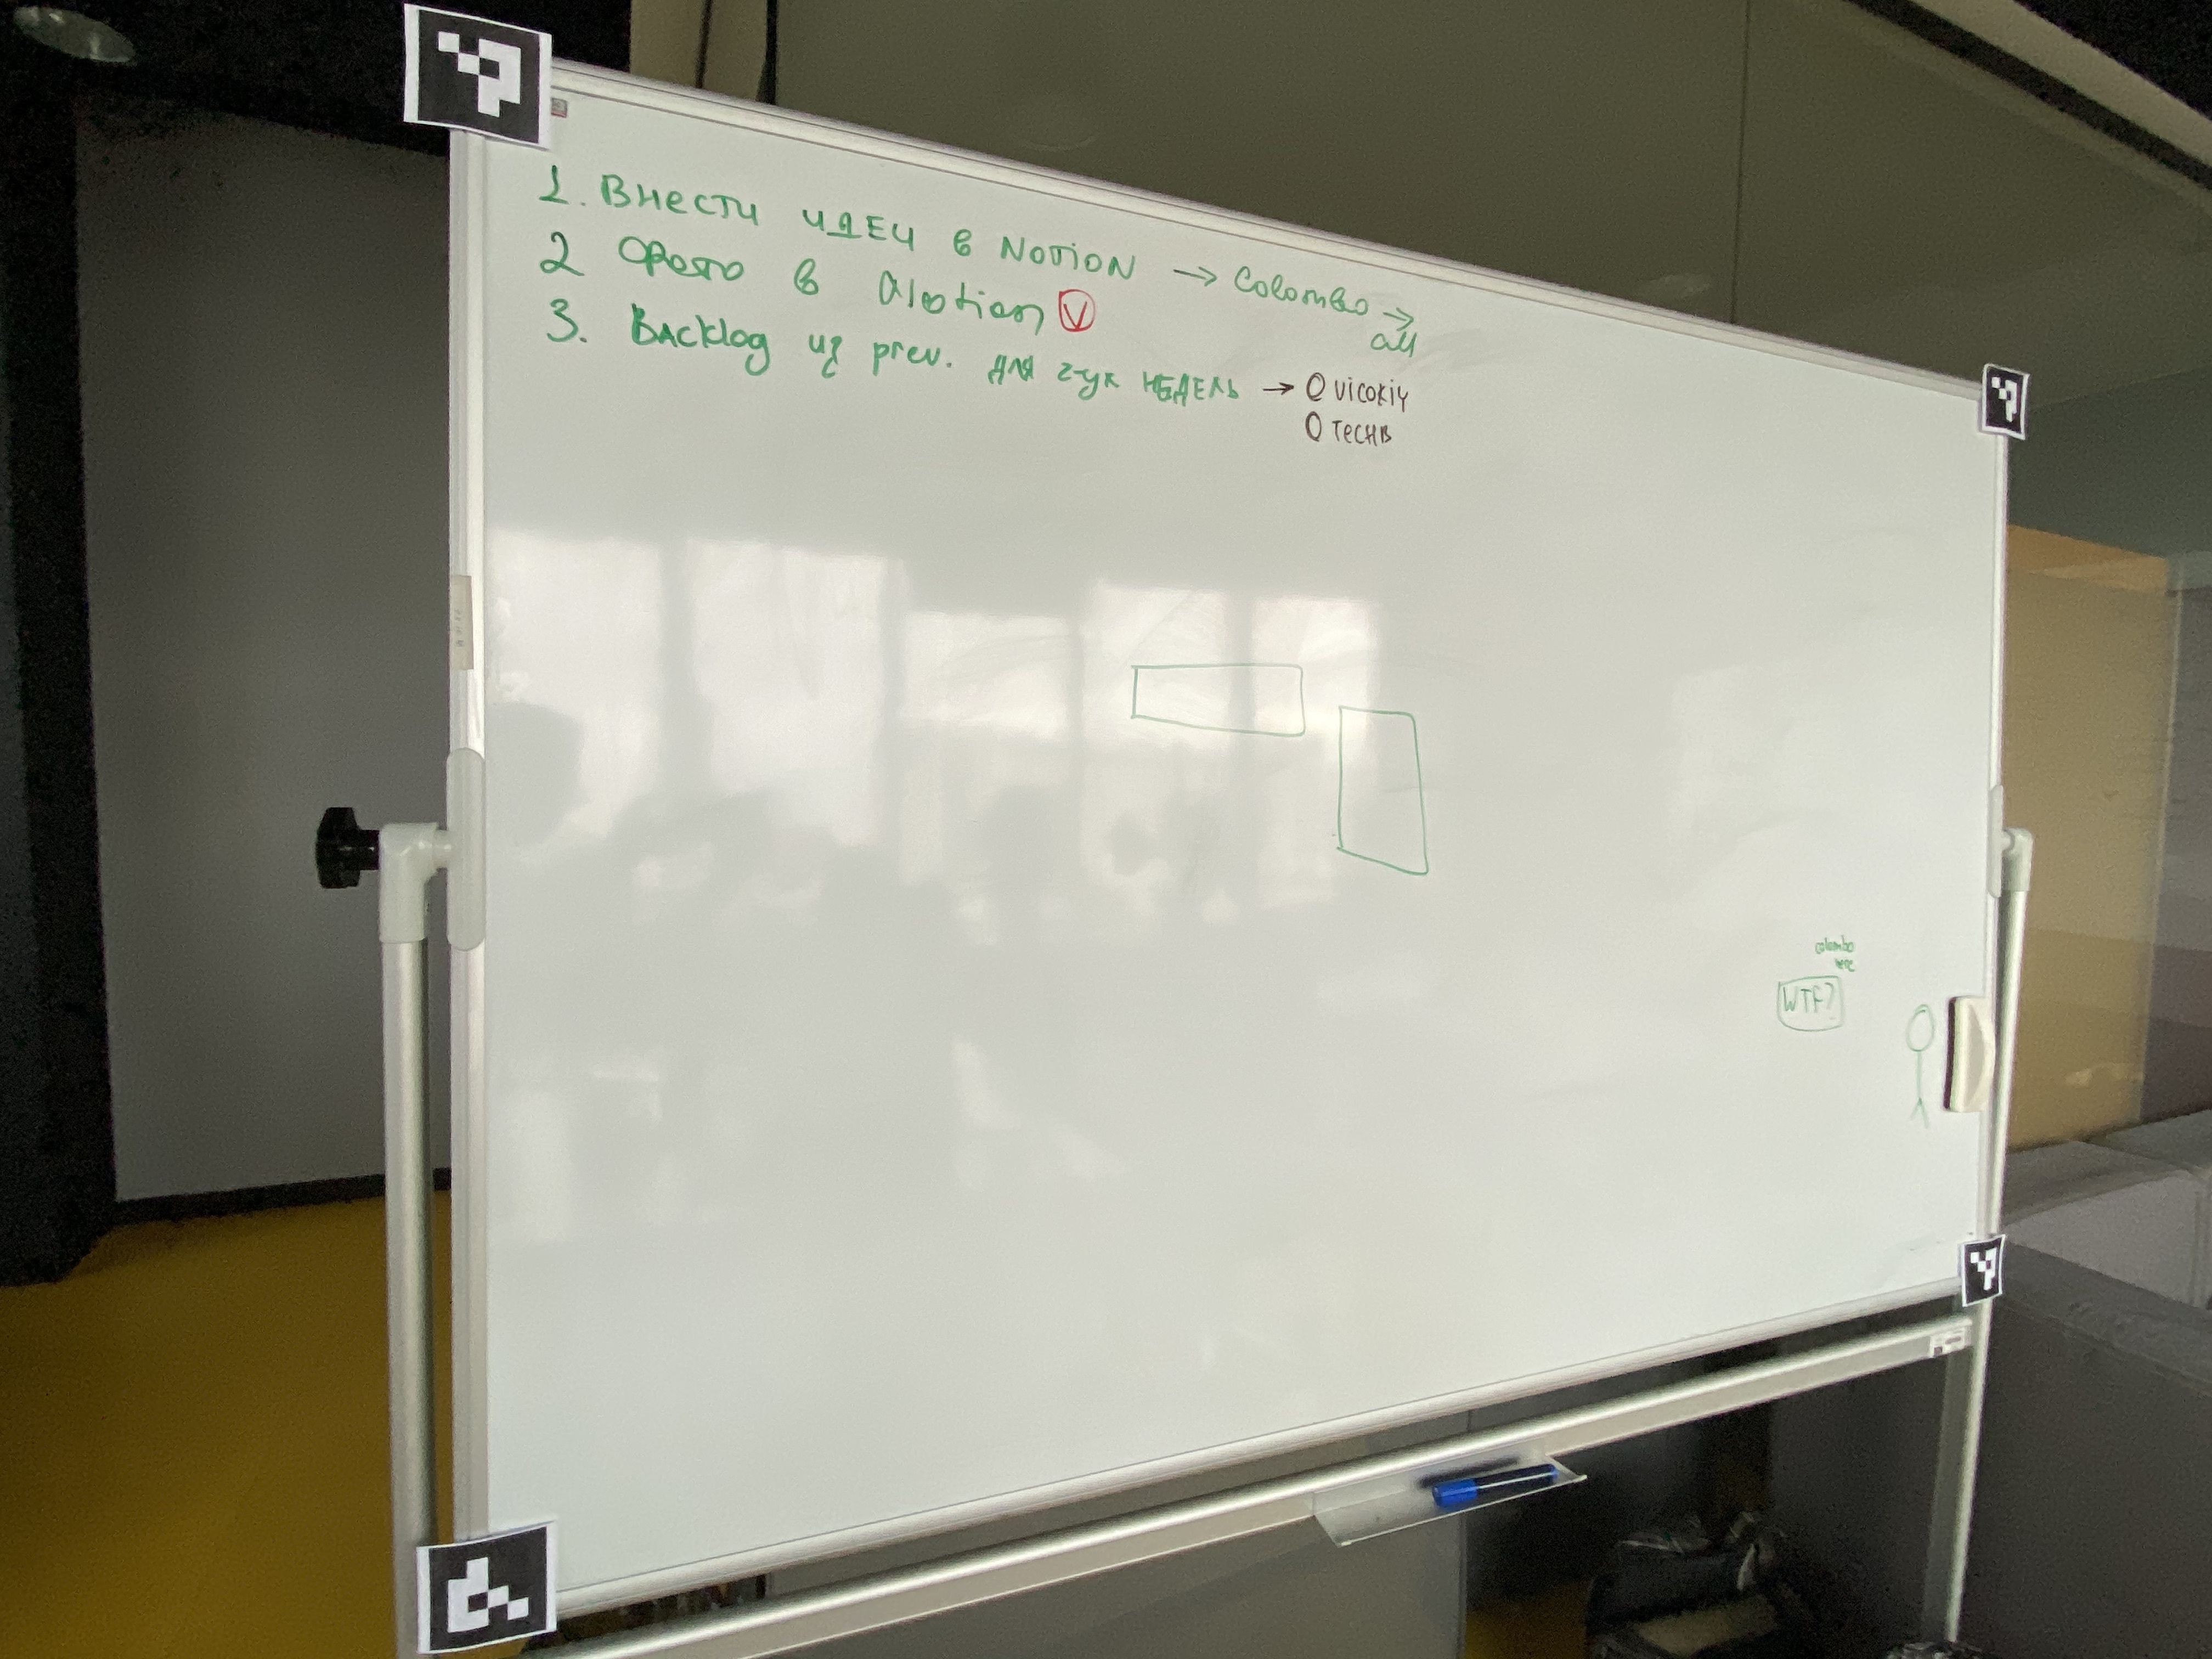 1. Внести идеи в Notion → Colombo →
all
2 Фото в Notion V
3. Backlog из prev. для 2-ух недель → O vicokiy
O TECHB
colombo
WTF?